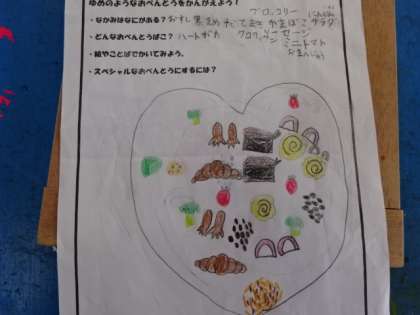 ゆめのようなおべんとうをかんがえよう!
ブロッコリー
・なかみはなにがある?おすし 黒まめ たまごやき かまぼこ サラダ
・どんなおべんとうばこ?ハートがた クロワッサン ソーセージ
ミニトマト
・絵やことばでかいてみよう。
・スペシャルなおべんとうにするには?